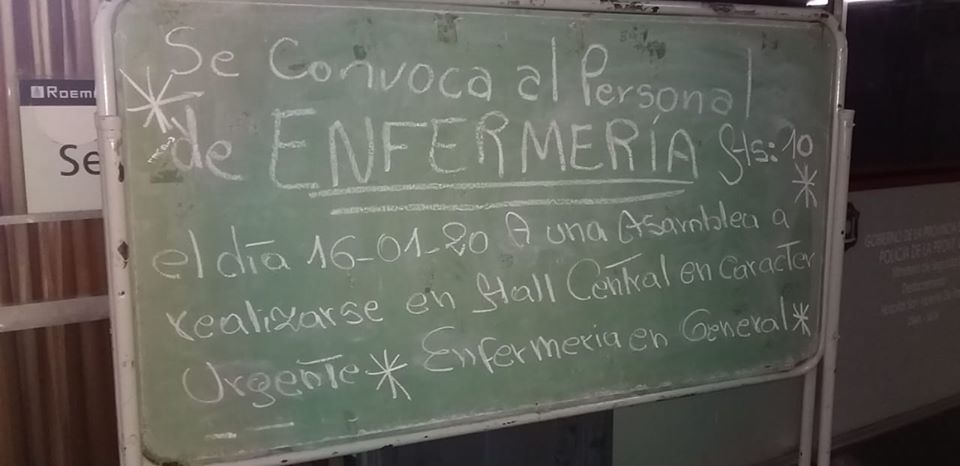 Se Convoca al Personal
de ENFERMERÍA Hs: 10
el día 16-01-20 A una Asamblea a
realizarse en Hall Central en caracter
Urgente * Enfermeria en General *
ROEM
Se
GOBIERNO DE LA PROVINCIA
POLICIA DE LA